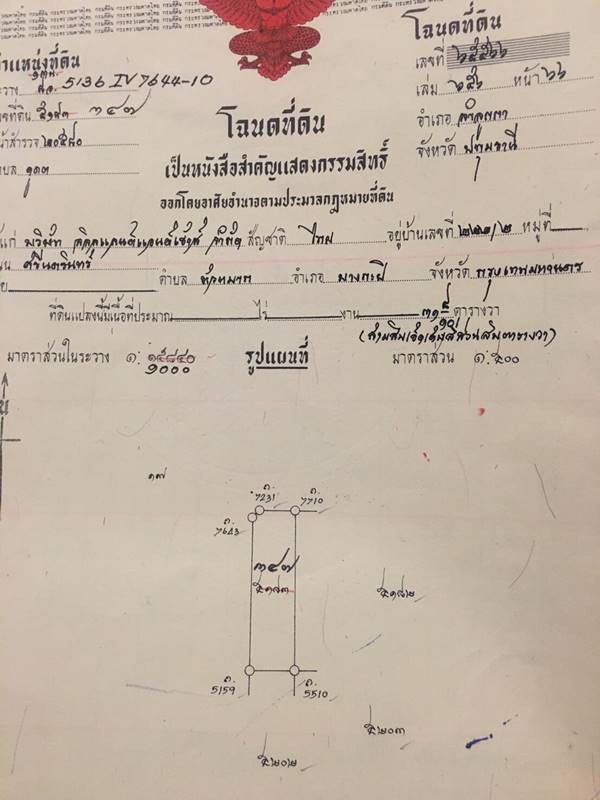 โฉนดที่ดิน
ตำแหน่งที่ดิน
ระวาง 5136 IV 7644-10
เลขที่
เลขที่ดิน ๕๑๙๓ ๓๔๗
เล่ม หน้า ๖๖
โฉนดที่ดิน
หน้าสำรวจ ๒๐๕๘๐
อำเภอ ลำลูกกา
ตำบล คูคต
จังหวัด ปทุมธานี
เป็นหนังสือสำคัญแสดงกรรมสิทธิ์
ออกโดยอาศัยอำนาจตามประมวลกฎหมายที่ดิน
ให้แก่ บริษัท แลนด์แอนด์เฮ้าส์ จำกัด สัญชาติ ไทย อยู่บ้านเลขที่ หมู่ที่
ถนน ศรีนครินทร์ ตำบล หัวหมาก อำเภอ บางกะปิ จังหวัด กรุงเทพมหานคร
ที่ดินแปลงนี้มีเนื้อที่ประมาณ ไร่ งาน ตารางวา
มาตราส่วนในระวาง ๑: ๑๕๘๔๐ รูปแผนที่ มาตราส่วน ๑:๕๐๐
๑๐๐๐
๑๗
7231 7710
7643
๓๔๗
๕๑๙๓
5159 5510
๕๒๐๓
๕๒๐๒